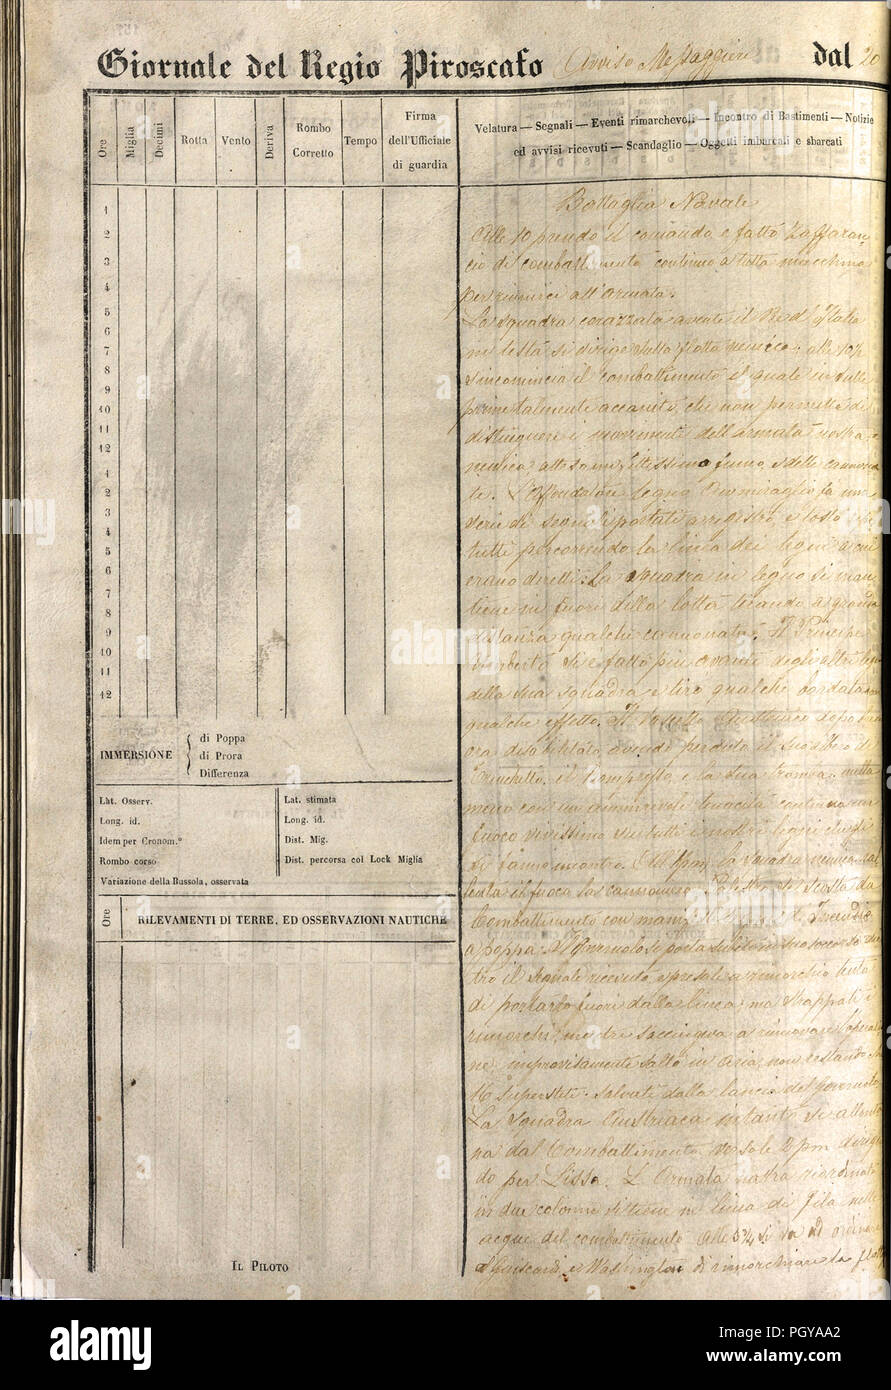 Giornale del Regio Piroscafo Avviso Messaggiere dal 20
Ore
Miglia
Decimi
Rotta
Vento
Deriva
Rombo
Corretto
Tempo
Firma
dell'Uffiziale
di guardia
Velatura — Segnali — Eventi rimarchevoli — Incontro di Bastimenti — Notizie
ed avvisi ricevuti — Scandaglio — Oggetti imbarcati e sbarcati
1
2
3
4
5
6
7
8
9
10
11
12
1
2
3
4
5
6
7
8
9
10
11
12
Battaglia Navale
Alle 10 prendo il comando e fatto Zaffaran-
cio di combattimento continuo a tutta macchina
per riunirci all'armata.
La Squadra corazzata avente il Re d'Italia
in testa si dirige sulla flotta nemica; alle 10½
s'incomincia il combattimento il quale in sulle
prime talmente accanito, che non permette di
distinguere i movimenti dell'armata nostra e
nemica atteso un fittissimo fumo delle cannona-
te. L'Affondatore legno Ammiraglio fa una
serie di segnali portati a registro, e tosto
tutti percorrendo la linea dei legni a cui
erano diretti. La Squadra in legno si man-
tiene in fuori della lotta tirando a grande
distanza qualche cannonata. Il Principe
Umberto si è fatto più avanti degli altri
della sua squadra e tirò qualche bordata con
qualche effetto. Il Vascello Austriaco dopo
ora disalberato avendo perduto il suo albero di
Trinchetto, il Bompresso, e la sua tromba, nulla
meno con una ammirevole tenacità continua un
fuoco vivissimo su tutti i nostri legni che gli
si fanno incontro. La squadra nemica
il fuoco la cannoniera Palestro si scosta da
Combattimento con Incendio
a poppa. Il Governolo si porta subito in suo soccorso
il segnale ricevuto e presala a rimorchio tenta
di portarla fuori dalla linea, ma strappati i
rimorchi, mentre s'accingeva a rinnovare l'operazio-
ne, improvvisamente saltò in aria, non restando
16 superstiti salvati dalla lancia del Governolo.
La Squadra Austriaca intanto si allonta-
na dal Combattimento verso le 2 pm dirigen-
do per Lissa. L'Armata nostra riordinata
in due colonne si tiene in linea di fila nelle
acque del combattimento. Alle 5¼ si dà
Guiscardo, e Washington di rimorchiare la
IMMERSIONE
di Poppa
di Prora
Differenza
Lat. Osserv.
Long. id.
Idem per Cronom.°
Rombo corso
Variazione della Bussola, osservata
Lat. stimata
Long. id.
Dist. Mig.
Dist. percorsa col Lock Miglia
Ore
RILEVAMENTI DI TERRE, ED OSSERVAZIONI NAUTICHE
IL PILOTO
alamy
a
alamy
Image ID: PGYAA2
www.alamy.com